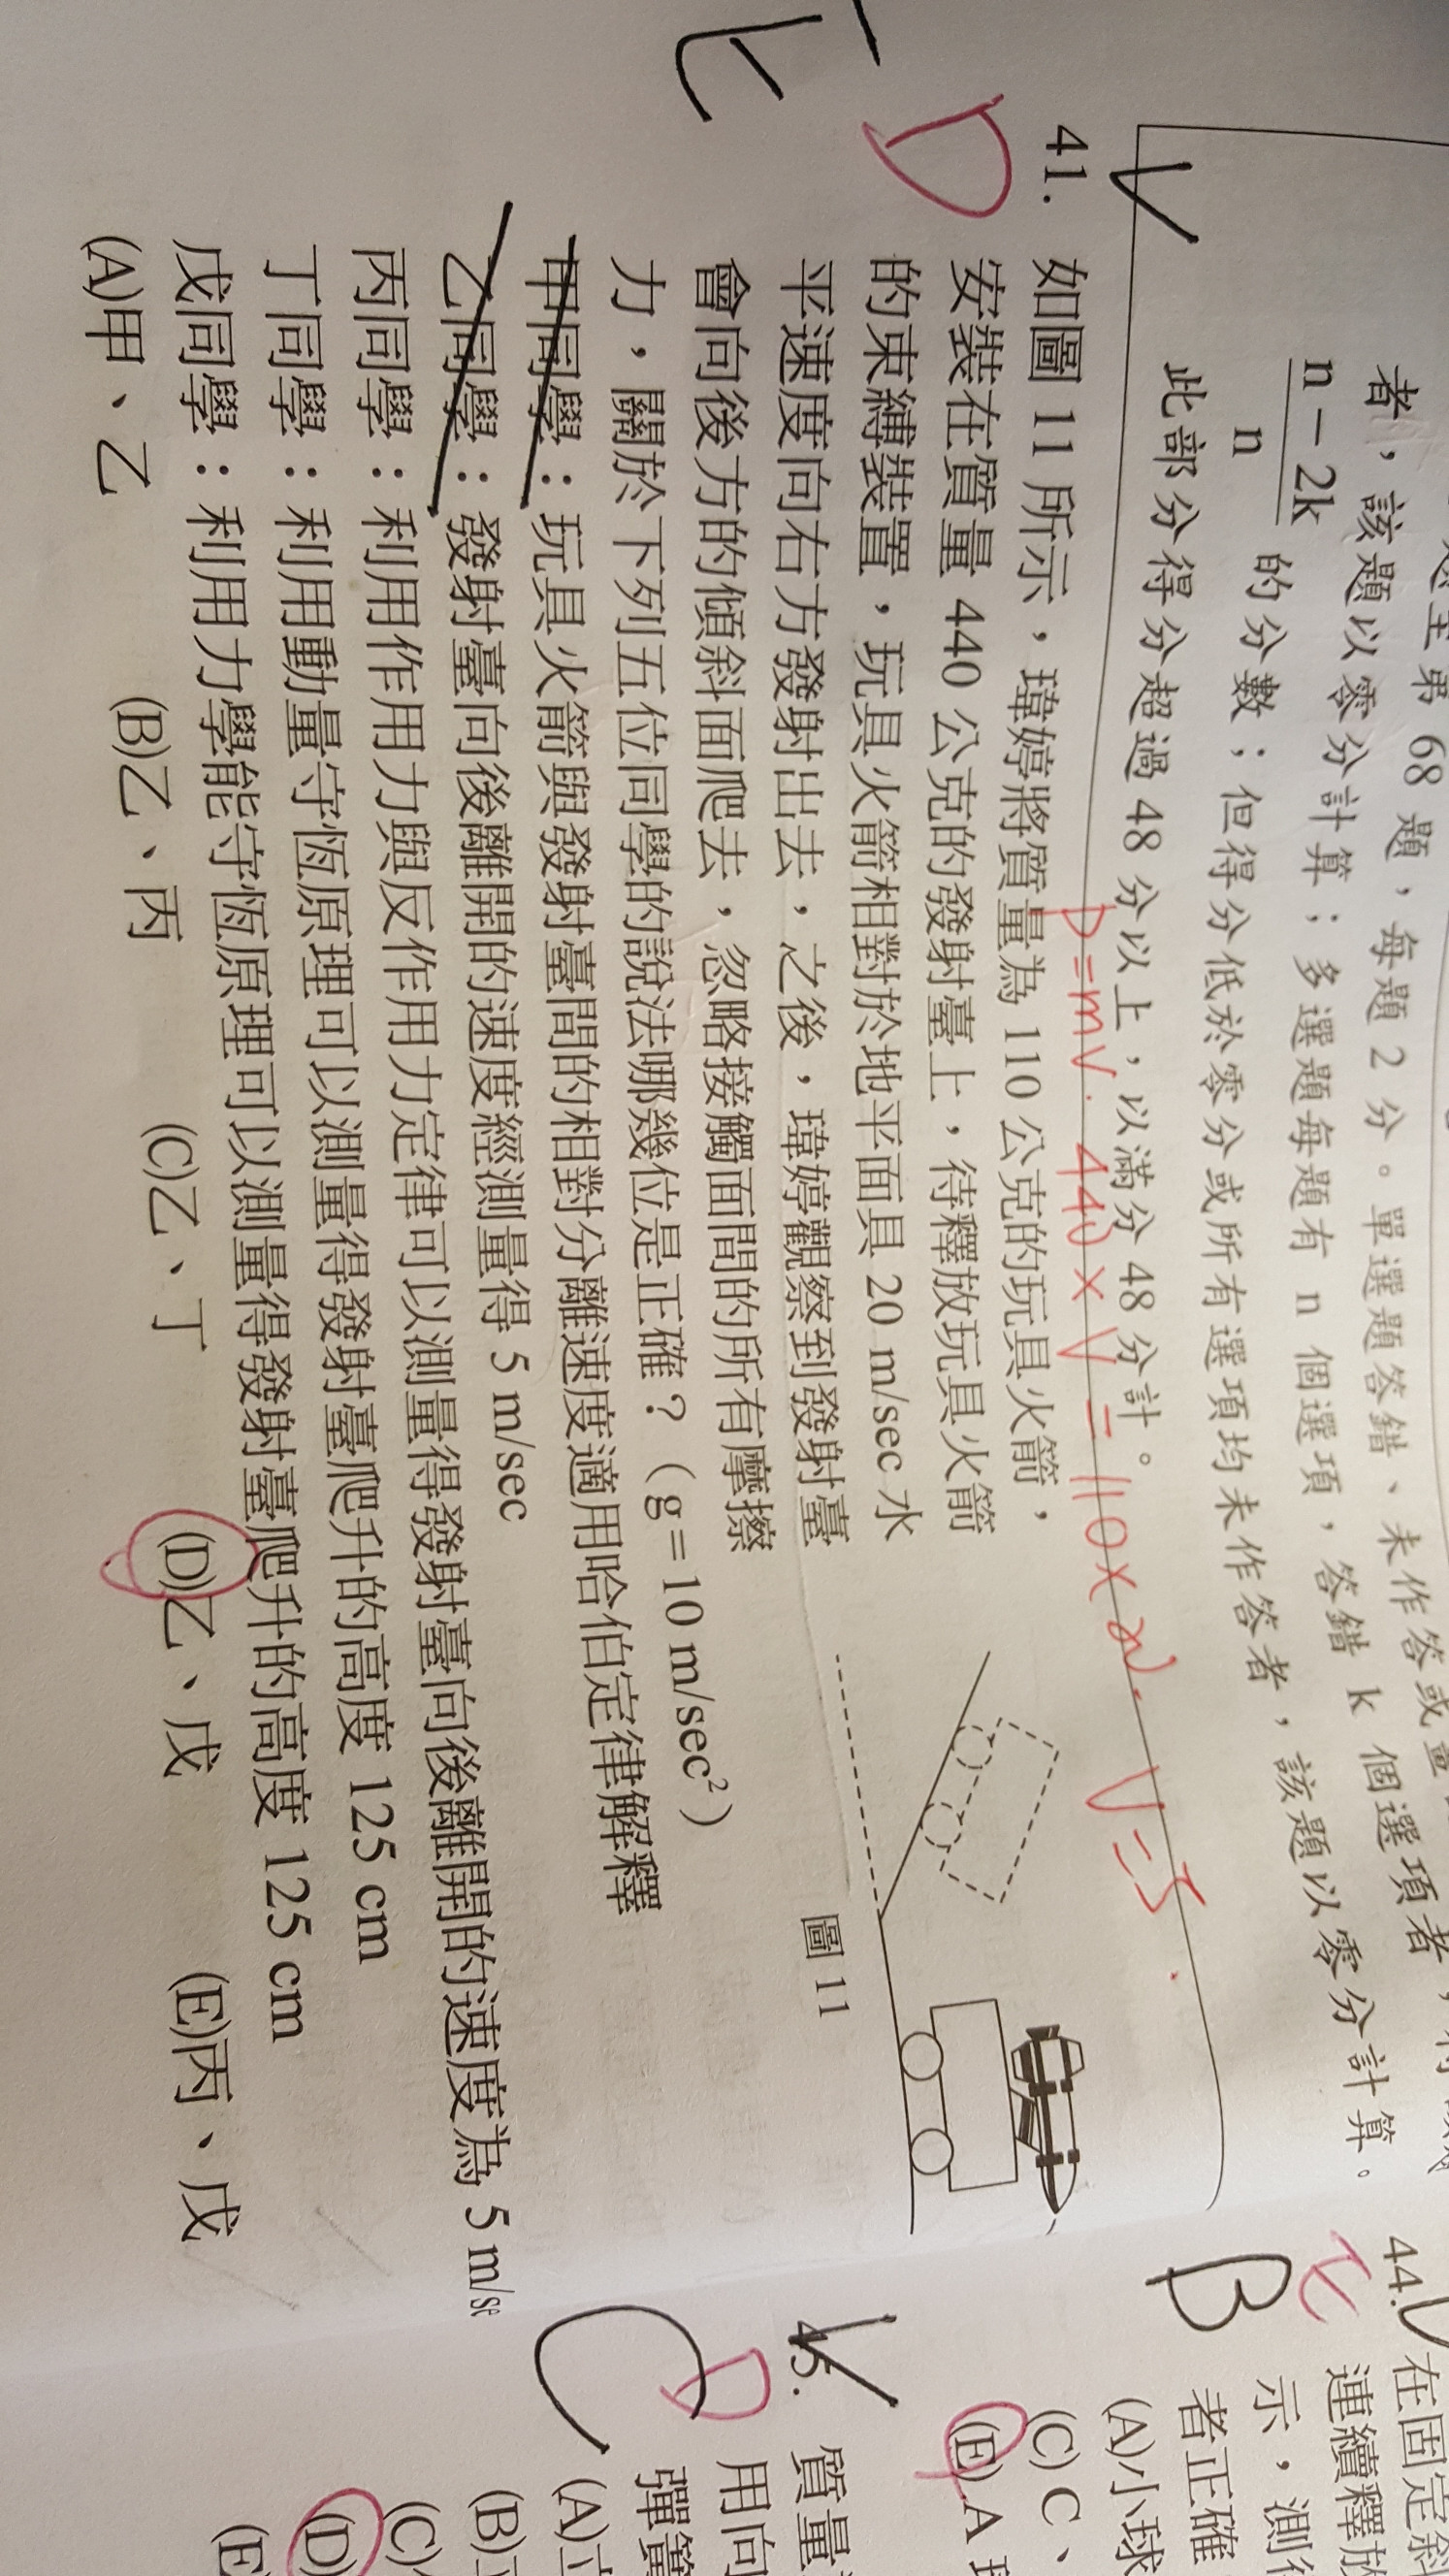 第 68 題，每題 2 分。單選題答錯、未作答或畫
者，該題以零分計算；多選題每題有 n 個選項，答錯 k 個選項者，
n－2k
n
的分數；但得分低於零分或所有選項均未作答者，該題以零分計算。
此部分得分超過 48 分以上，以滿分 48 分計。
P=mV. 440×V=110×20. V=5
41.
D
E
如圖 11 所示，瑋婷將質量為 110 公克的玩具火箭，
安裝在質量 440 公克的發射臺上，待釋放玩具火箭
的束縛裝置，玩具火箭相對於地平面具 20 m/sec 水
平速度向右方發射出去，之後，瑋婷觀察到發射臺
會向後方的傾斜面爬去，忽略接觸面間的所有摩擦
力，關於下列五位同學的說法哪幾位是正確？（g＝10 m/sec²）
圖 11
甲同學：玩具火箭與發射臺間的相對分離速度適用哈伯定律解釋
乙同學：發射臺向後離開的速度經測量得 5 m/sec
丙同學：利用作用力與反作用力定律可以測量得發射臺向後離開的速度為 5 m/se
丁同學：利用動量守恆原理可以測量得發射臺爬升的高度 125 cm
戊同學：利用力學能守恆原理可以測量得發射臺爬升的高度 125 cm
(A)甲、乙 (B)乙、丙 (C)乙、丁 (D)乙、戊 (E)丙、戊
44.
E
B
在固定斜
連續釋放
示，測得
者正確
(A)小球
(C) C、
(E) A
45.
D
C
質量
用向
彈簧
(A)
(B)
(C)
(D)
(E)